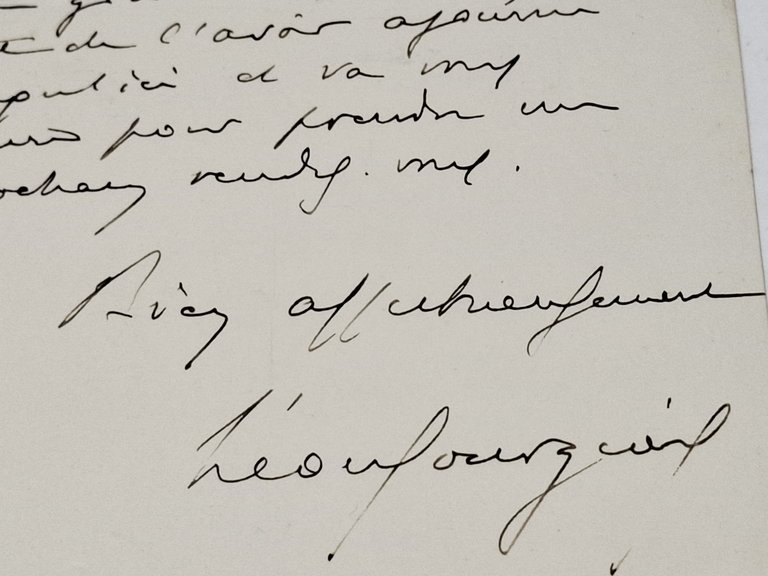 de l'avoir ajourné
et va vous
pour prendre un
prochain rendez-vous.
Bien affectueusement
Léon Bourgeois